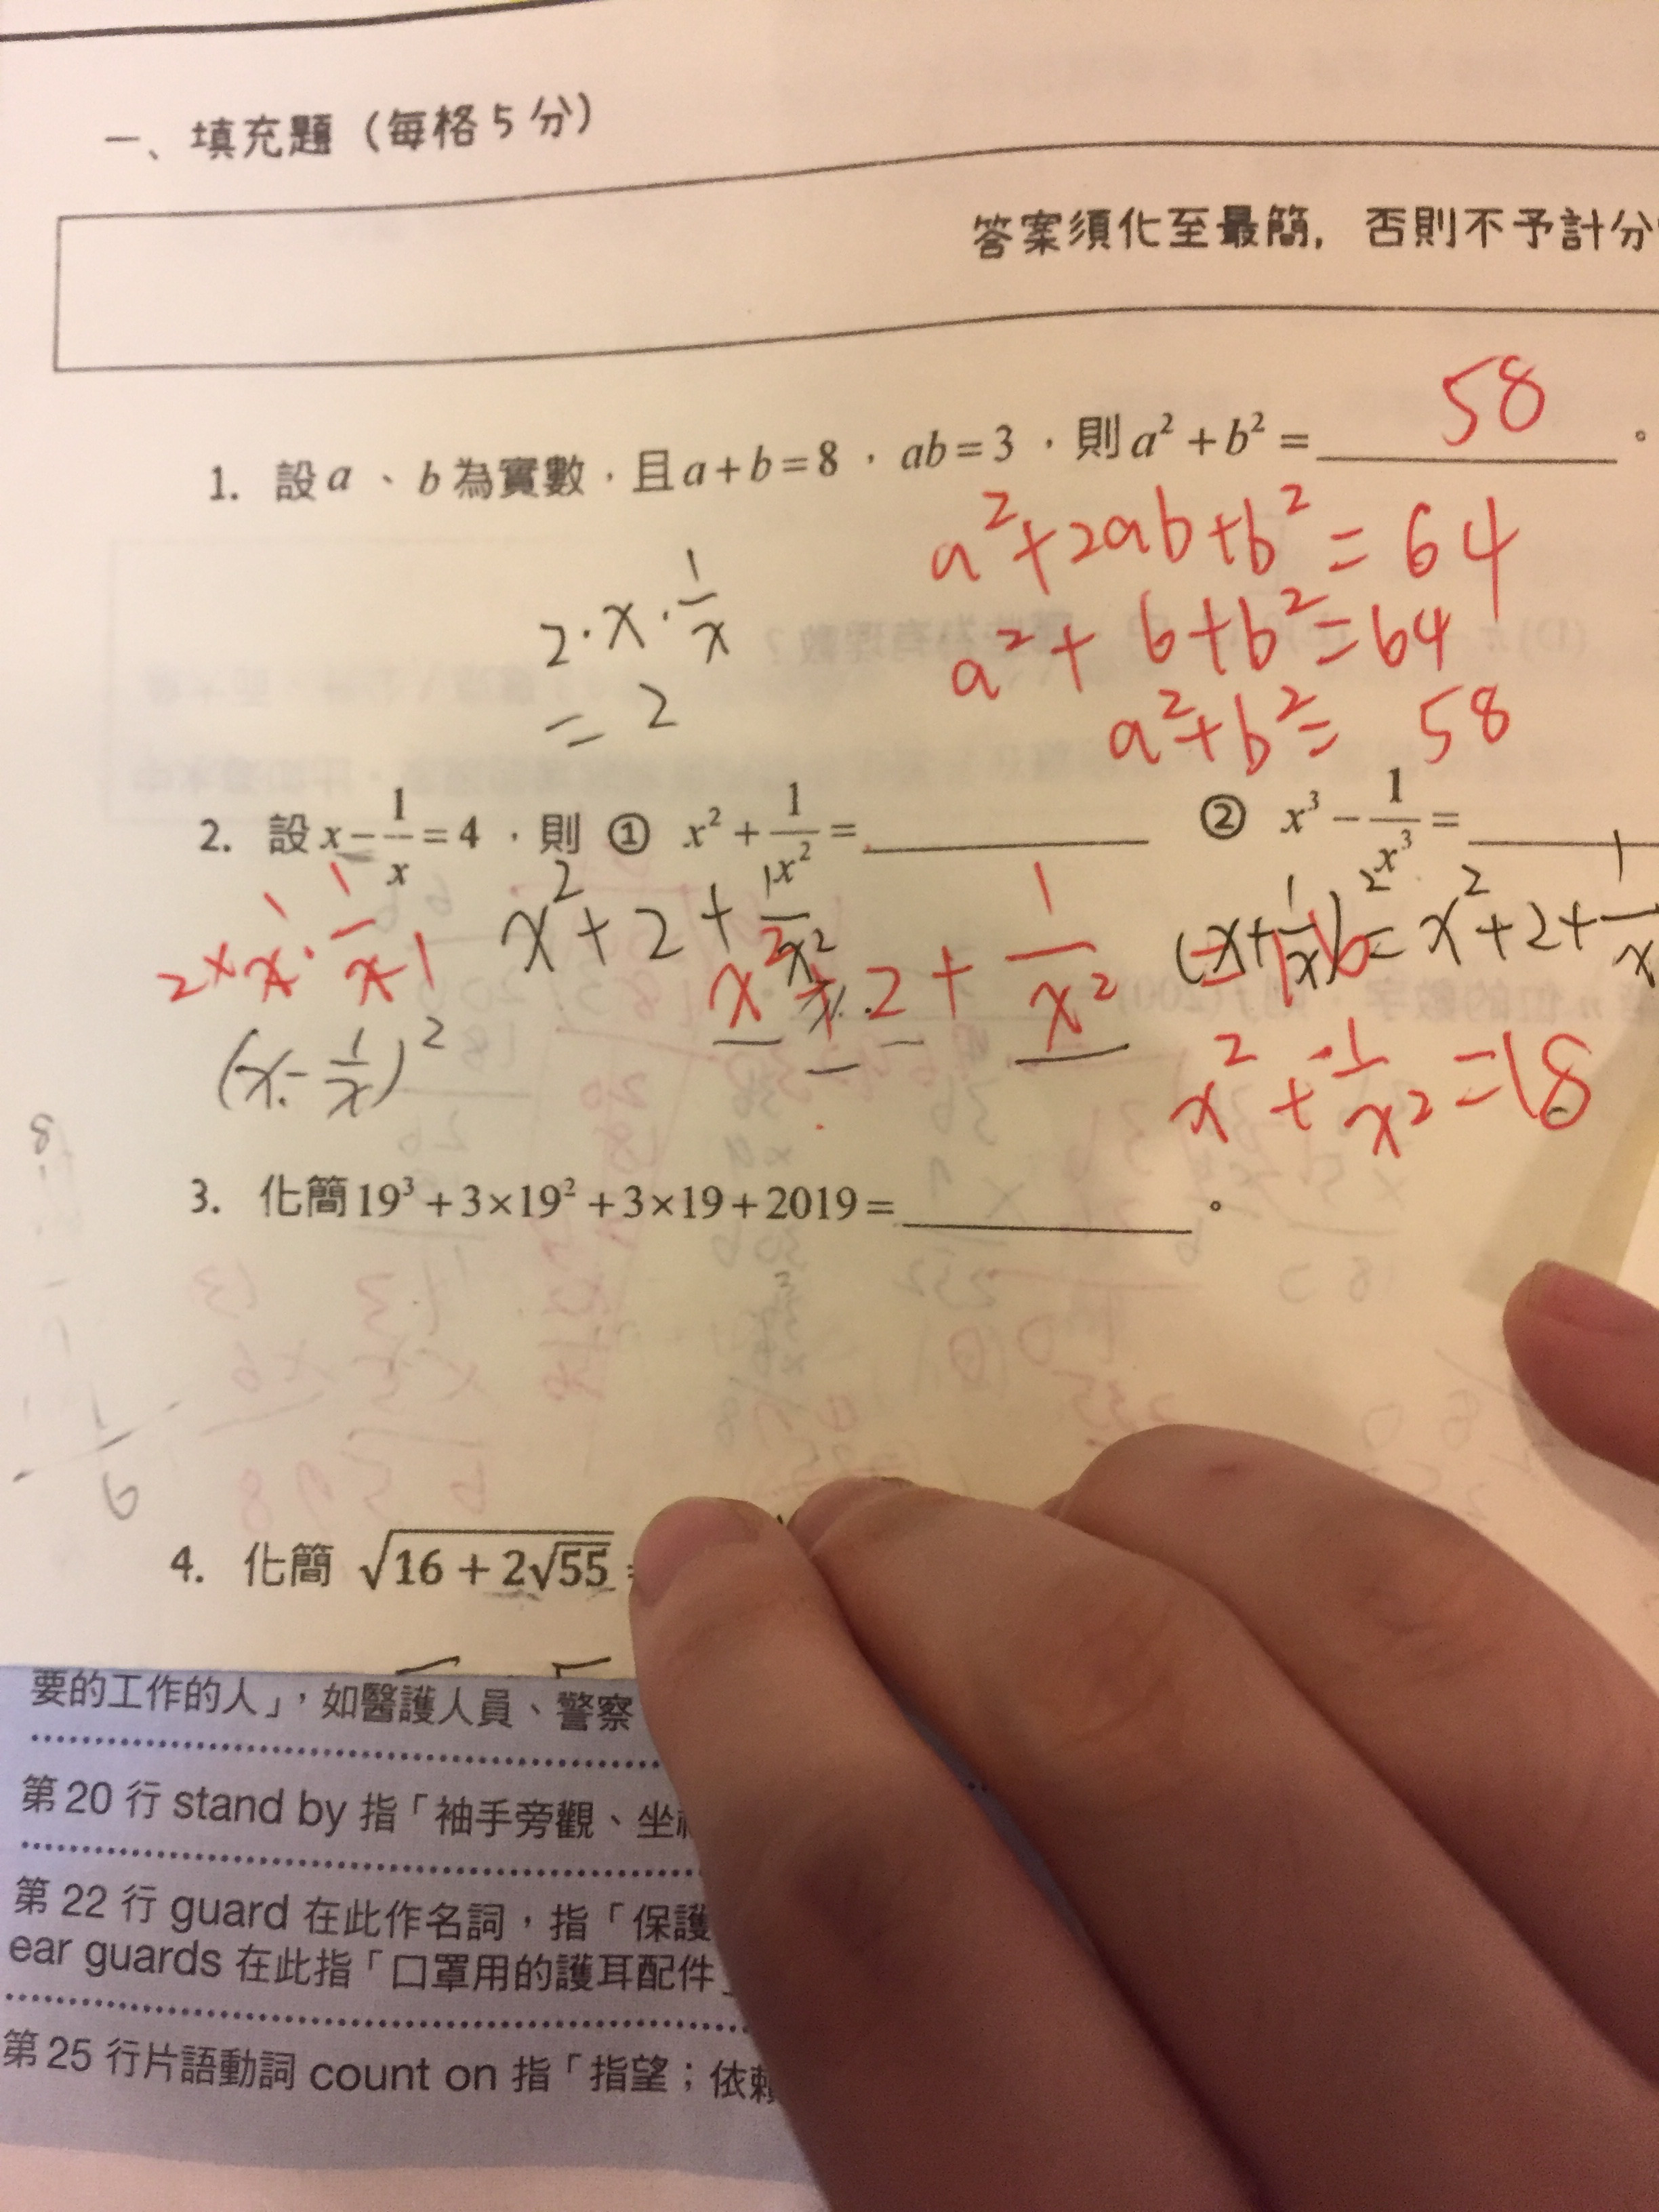 一、填充題（每格5分）
答案須化至最簡，否則不予計分
1. 設a、b為實數，且a+b=8，ab=3，則a²+b²=58。
a²+2ab+b²=64
2·x·1/x
a²+6+b²=64
=2
a²+b²=58
2. 設x-1/x=4，則 ① x²+1/x²= ② x³-1/x³=
2×x·1/x 1
x²+2+1/x²
(x+1/x)²=x²+2+1/x
x²-2+1/x²=16
(x-1/x)²
x²+1/x²=18
3. 化簡19³+3×19²+3×19+2019=。
4. 化簡 √(16+2√55)
要的工作的人」，如醫護人員、警察
第20行 stand by 指「袖手旁觀、坐
第22行 guard 在此作名詞，指「保護
ear guards 在此指「口罩用的護耳配件」
第25行片語動詞 count on 指「指望；依賴